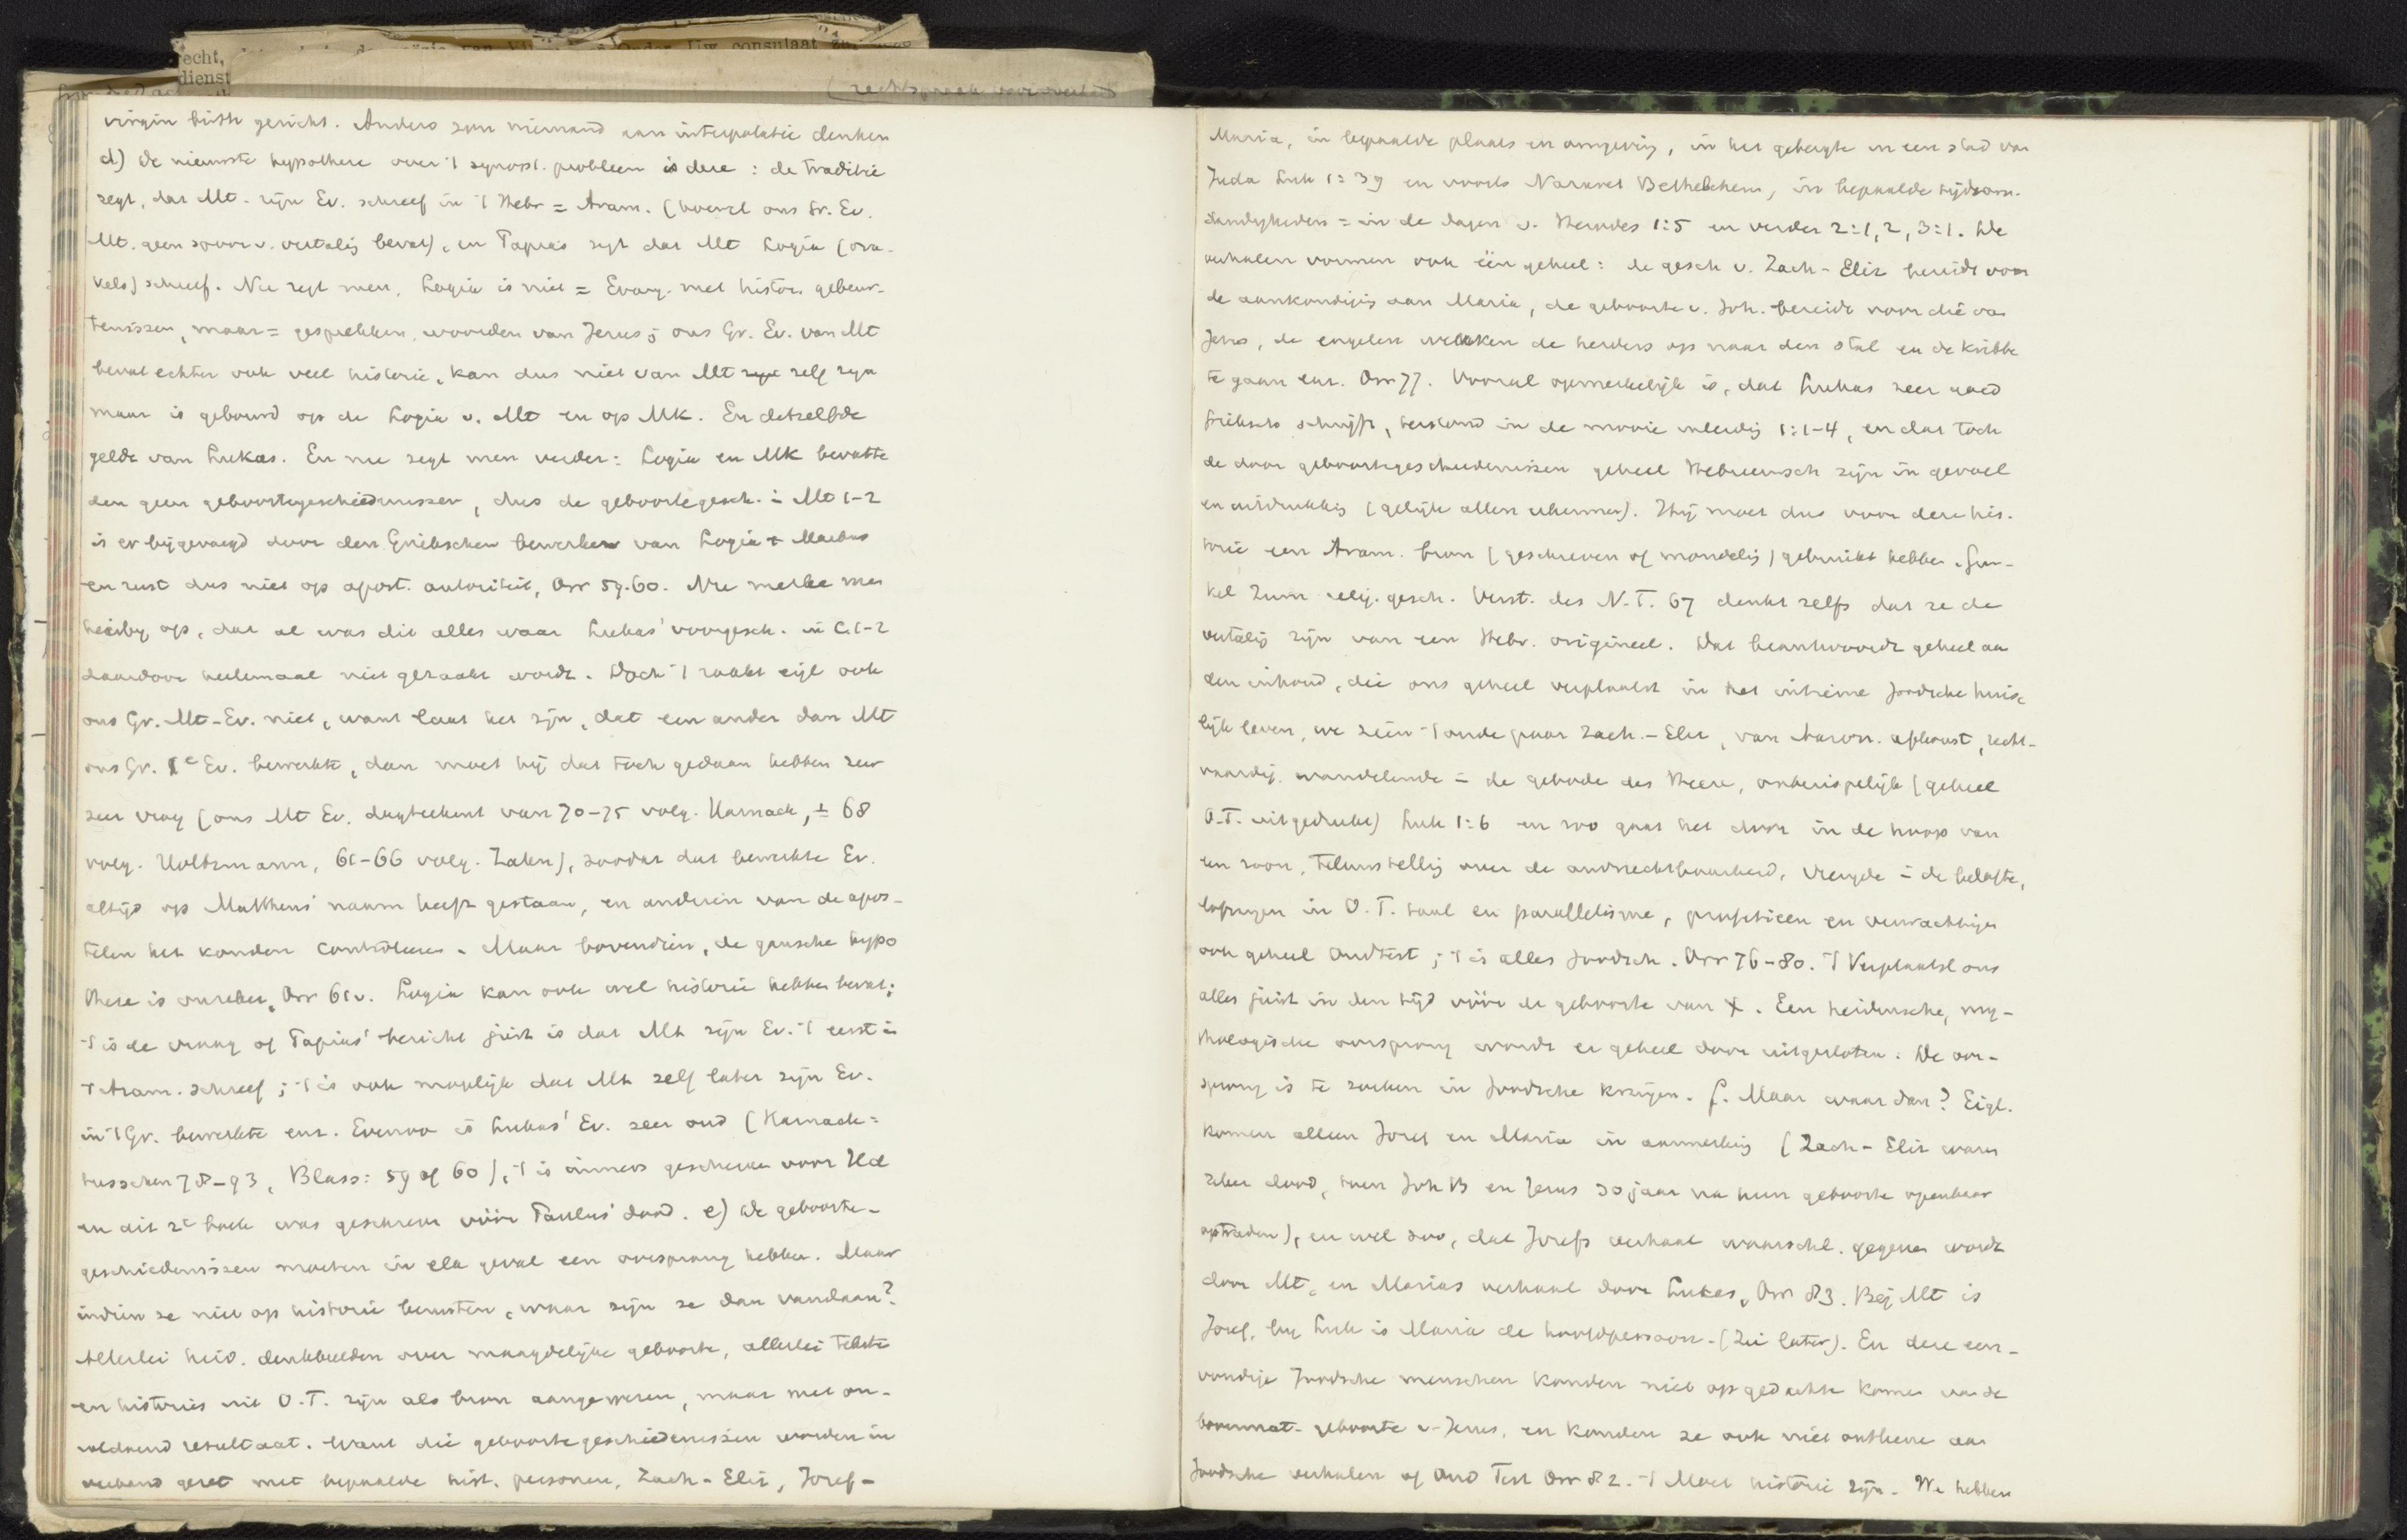 recht,
dienst
Uw consulaat
virgin birth gericht. Anders zou niemand aan interpolatie denken
d) De nieuwste hypothese over 't synopt. probleem is deze: de traditie
zegt, dat Mt. zijn Ev. schreef in 't Hebr = Aram. (hoewel ons Gr. Ev.
Mt. geen spoor v. vertalig bevat), en Papias zegt dat Mt Logia (ora-
kels) schreef. Nu zegt men, Logia is niet = Evang. met histor. gebeur-
tenissen, maar = gesprekken, woorden van Jezus; ons Gr. Ev. van Mt
bevat echter ook veel historie, kan dus niet van Mt zelf zijn
maar is gebouwd op de Logia v. Mt en op Mk. En datzelfde
geldt van Lukas. En nu zegt men verder: Logia en Mk bevatte
den geen geboortegeschiedenissen, dus de geboortegesch. in Mt 1-2
is er bijgevoegd door den Griekschen bewerker van Logia + Markus
en rust dus niet op apost. autoriteit, Orr 59.60. Nu merke men
hierbij op, dat al was dit alles waar Lukas' voorgesch. in C. 1-2
daardoor heelemaal niet geraakt wordt. Doch 't raakt eigl ook
ons Gr. Mt-Ev. niet, want laat het zijn, dat een ander dan Mt
ons Gr. 1e Ev. bewerkte, dan moet hij dat toch gedaan hebben zeer
zeer vroeg (ons Mt Ev. dagteekent van 70-75 volg. Harnack, ± 68
volg. Holtzmann, 61-66 volg. Zahn), zoodat dat bewerkte Ev.
altijd op Mattheus' naam heeft gestaan, en anderen van de apos-
telen het konden controleeren. Maar bovendien, de gansche hypo
these is onzeker, Orr 61v. Logia kan ook wel historie hebben bevat;
't is de vraag of Papias' bericht juist is dat Mt zijn Ev. 't eerst in
't Aram. schreef; 't is ook mogelijk dat Mt zelf later zijn Ev.
in 't Gr. bewerkte enz. Evenzoo is Lukas' Ev. zeer oud (Harnack:
tusschen 78-93, Blass: 59 of 60), 't is immers geschreven voor Hd
en dit 2e boek was geschreven vóór Paulus' dood. e) De geboorte-
geschiedenissen moeten in elk geval een oorsprong hebben. Maar
indien ze niet op historie berusten, waar zijn ze dan vandaan?
Allerlei heid. denkbeelden over maagdelijke geboorte, allerlei teksten
en histories uit O.T. zijn als bron aangewezen, maar met on-
voldoend resultaat. Want die geboortegeschiedenissen worden in
verband gezet met bepaalde hist. personen, Zach-Eliz, Jozef-
Maria, in bepaalde plaats en omgeving, in het gebergte in een stad van
Juda Luk 1:39 en voorts Nazaret Bethlehem, in bepaalde tijdsom-
standigheden = in de dagen v. Herodes 1:5 en verder 2:1,2, 3:1. De
verhalen vormen ook één geheel: de gesch v. Zach-Eliz bereidt voor
de aankondigig aan Maria, de geboorte v. Joh. bereidt voor die van
Jezus, de engelen wekken de herders op naar den stal en de kribbe
te gaan enz. Orr 77. Vooral opmerkelijk is, dat Lukas zeer goed
Grieksch schrijft, bestond in de mooie inleidig 1:1-4, en dat toch
de door geboortegeschiedenissen geheel Hebreeuwsch zijn in gevoel
en uitdrukkig (gelijk allen erkennen). Hij moet dus voor deze his-
torie een Aram. bron (geschreven of mondelig) gebruikt hebben. Gun-
kel Zum relig. gesch. Verst. des N.T. 67 denkt zelfs dat ze de
vertalig zijn van een Hebr. origineel. Dat beantwoordt geheel aan
den inhoud, die ons geheel verplaatst in het intieme Joodsche huise
lijk leven, we zien 't oude paar Zach.-Eliz, van Aaron. afkomst, recht-
vaardig wandelende in de geboden des Heere, onberispelijk (geheel
O.T. uitgedrukt) Luk 1:6 en zoo gaat het door in de hoop van
een zoon, teleurstellig over de onvruchtbaarheid, vreugde in de belofte,
lofzangen in O.T. taal en parallelisme, profetieen en verwachtigen
ook geheel Oudtest; 't is alles Joodsch. Orr 76-80. 't Verplaatst ons
alles juist in den tijd vóór de geboorte van X. Een heidensche, my-
thologische oorsprong wordt er geheel door uitgesloten. De oor-
sprong is te zoeken in Joodsche kringen. f. Maar waar dan? Eigl.
komen alleen Jozef en Maria in aanmerkig (Zach-Eliz waren
zeker dood, toen Joh B en Jezus 30 jaar na hun geboorte openbaar
optraden), en wel zoo, dat Jozefs verhaal waarschl. gegeven wordt
door Mt, en Marias verhaal door Lukas, Orr 83. Bij Mt is
Jozef, bij Luk is Maria de hoofdpersoon. (Zie later). En deze een-
voudige Joodsche menschen konden niet op gedachte komen van de
bovennat. geboorte v. Jezus, en konden ze ook niet ontleene aan
Joodsche verhalen of Oud Test Orr 82. 't Moet historie zijn. We hebben